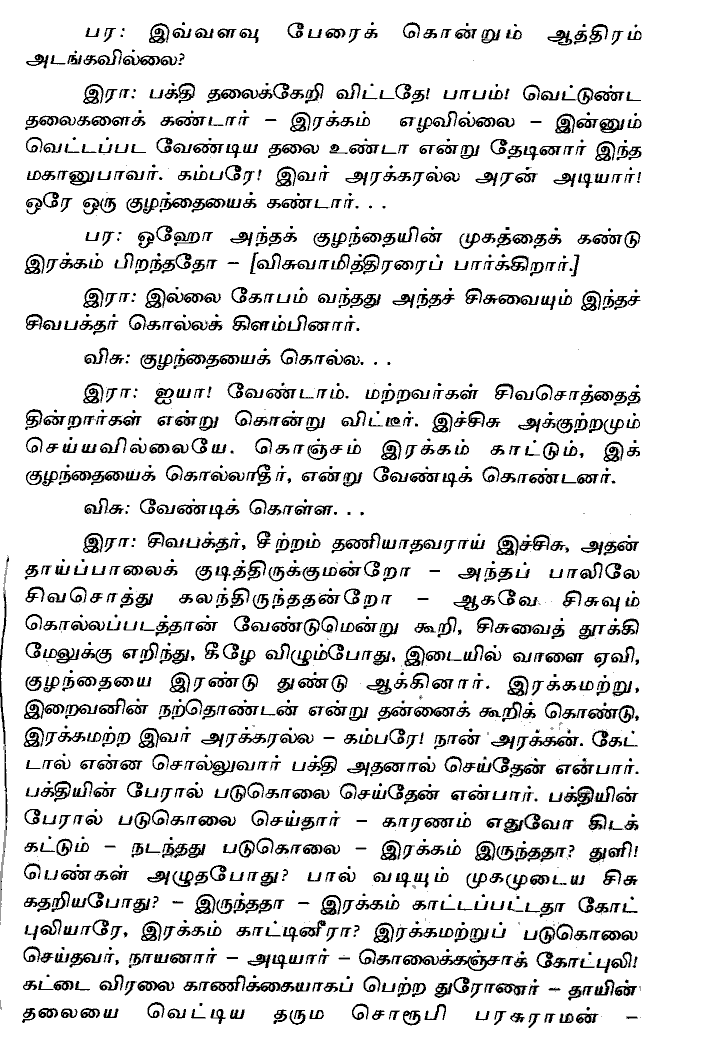 பர: இவ்வளவு பேரைக் கொன்றும் ஆத்திரம்
அடங்கவில்லை?
இரா: பக்தி தலைக்கேறி விட்டதே! பாபம்! வெட்டுண்ட
தலைகளைக் கண்டார் – இரக்கம் எழவில்லை – இன்னும்
வெட்டப்பட வேண்டிய தலை உண்டா என்று தேடினார் இந்த
மகானுபாவர். கம்பரே! இவர் அரக்கரல்ல அரன் அடியார்!
ஒரே ஒரு குழந்தையைக் கண்டார். . .
பர: ஒஹோ அந்தக் குழந்தையின் முகத்தைக் கண்டு
இரக்கம் பிறந்ததோ – [விசுவாமித்திரரைப் பார்க்கிறார்.]
இரா: இல்லை கோபம் வந்தது அந்தச் சிசுவையும் இந்தச்
சிவபக்தர் கொல்லக் கிளம்பினார்.
விசு: குழந்தையைக் கொல்ல. . .
இரா: ஐயா! வேண்டாம். மற்றவர்கள் சிவசொத்தைத்
தின்றார்கள் என்று கொன்று விட்டீர். இச்சிசு அக்குற்றமும்
செய்யவில்லையே. கொஞ்சம் இரக்கம் காட்டும், இக்
குழந்தையைக் கொல்லாதீர், என்று வேண்டிக் கொண்டனர்.
விசு: வேண்டிக் கொள்ள. . .
இரா: சிவபக்தர், சீற்றம் தணியாதவராய் இச்சிசு, அதன்
தாய்ப்பாலைக் குடித்திருக்குமன்றோ – அந்தப் பாலிலே
சிவசொத்து கலந்திருந்ததன்றோ – ஆகவே சிசுவும்
கொல்லப்படத்தான் வேண்டுமென்று கூறி, சிசுவைத் தூக்கி
மேலுக்கு எறிந்து, கீழே விழும்போது, இடையில் வாளை ஏவி,
குழந்தையை இரண்டு துண்டு ஆக்கினார். இரக்கமற்று,
இறைவனின் நற்தொண்டன் என்று தன்னைக் கூறிக் கொண்டு,
இரக்கமற்ற இவர் அரக்கரல்ல – கம்பரே! நான் அரக்கன். கேட்
டால் என்ன சொல்லுவார் பக்தி அதனால் செய்தேன் என்பார்.
பக்தியின் பேரால் படுகொலை செய்தேன் என்பார். பக்தியின்
பேரால் படுகொலை செய்தார் – காரணம் எதுவோ கிடக்
கட்டும் – நடந்தது படுகொலை – இரக்கம் இருந்ததா? துளி!
பெண்கள் அழுதபோது? பால் வடியும் முகமுடைய சிசு
கதறியபோது? – இருந்ததா – இரக்கம் காட்டப்பட்டதா கோட்
புலியாரே, இரக்கம் காட்டினீரா? இரக்கமற்றுப் படுகொலை
செய்தவர், நாயனார் – அடியார் – கொலைக்கஞ்சாக் கோட்புலி!
கட்டை விரலை காணிக்கையாகப் பெற்ற துரோணர் – தாயின்
தலையை வெட்டிய தரும சொரூபி பரசுராமன் –